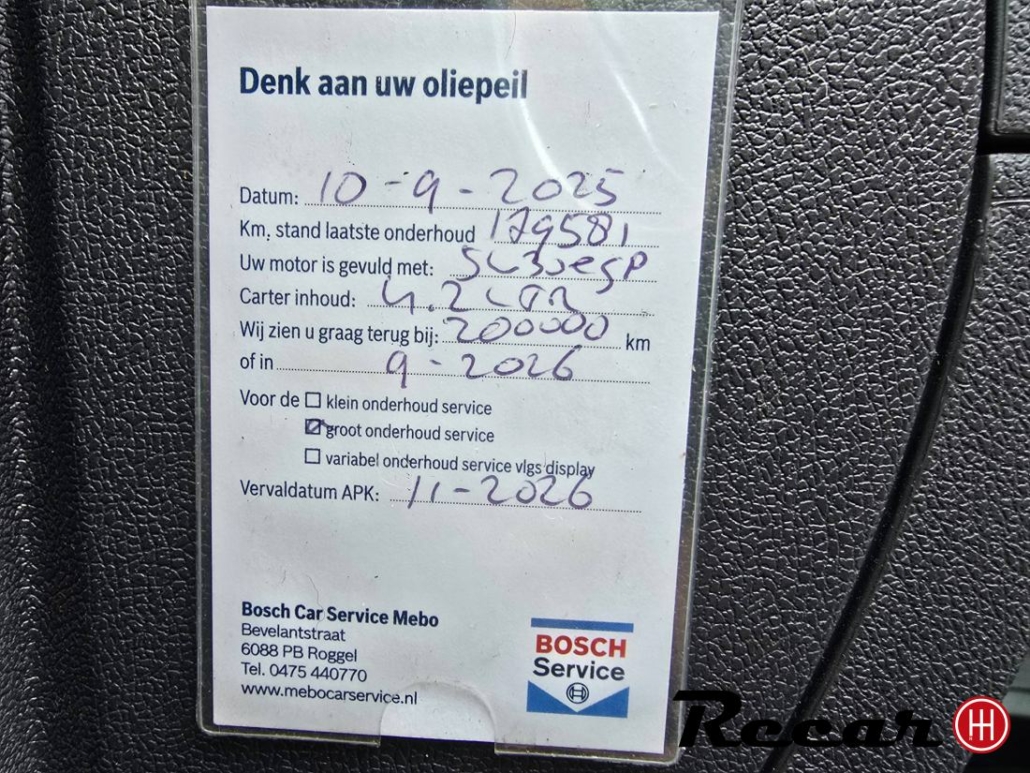 Denk aan uw oliepeil
Datum: 10-9-2025
Km. stand laatste onderhoud 179581
Uw motor is gevuld met:
Carter inhoud: 4.2 LTR
Wij zien u graag terug bij: 200000 km
of in 9-2026
Voor de klein onderhoud service
groot onderhoud service
variabel onderhoud service vlgs display
Vervaldatum APK: 11-2026
Bosch Car Service Mebo
Bevelantstraat
6088 PB Roggel
Tel. 0475 440770
www.mebocarservice.nl
BOSCH
Service
Recar